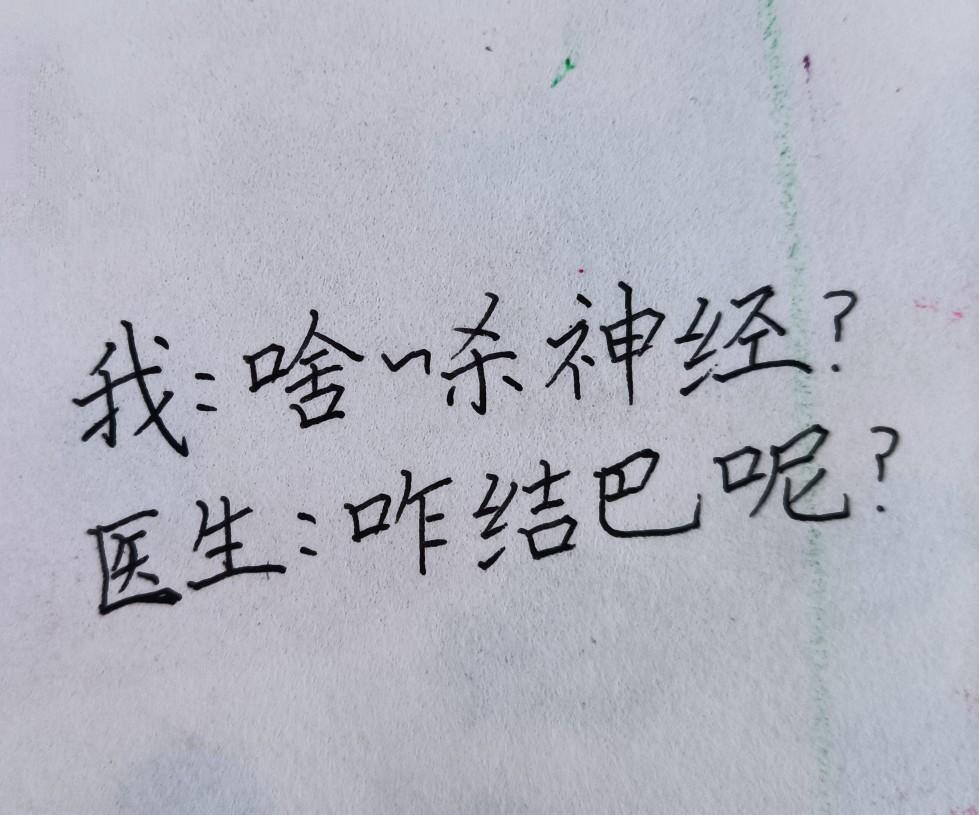 我:啥~杀神经?
医生:咋结巴呢?